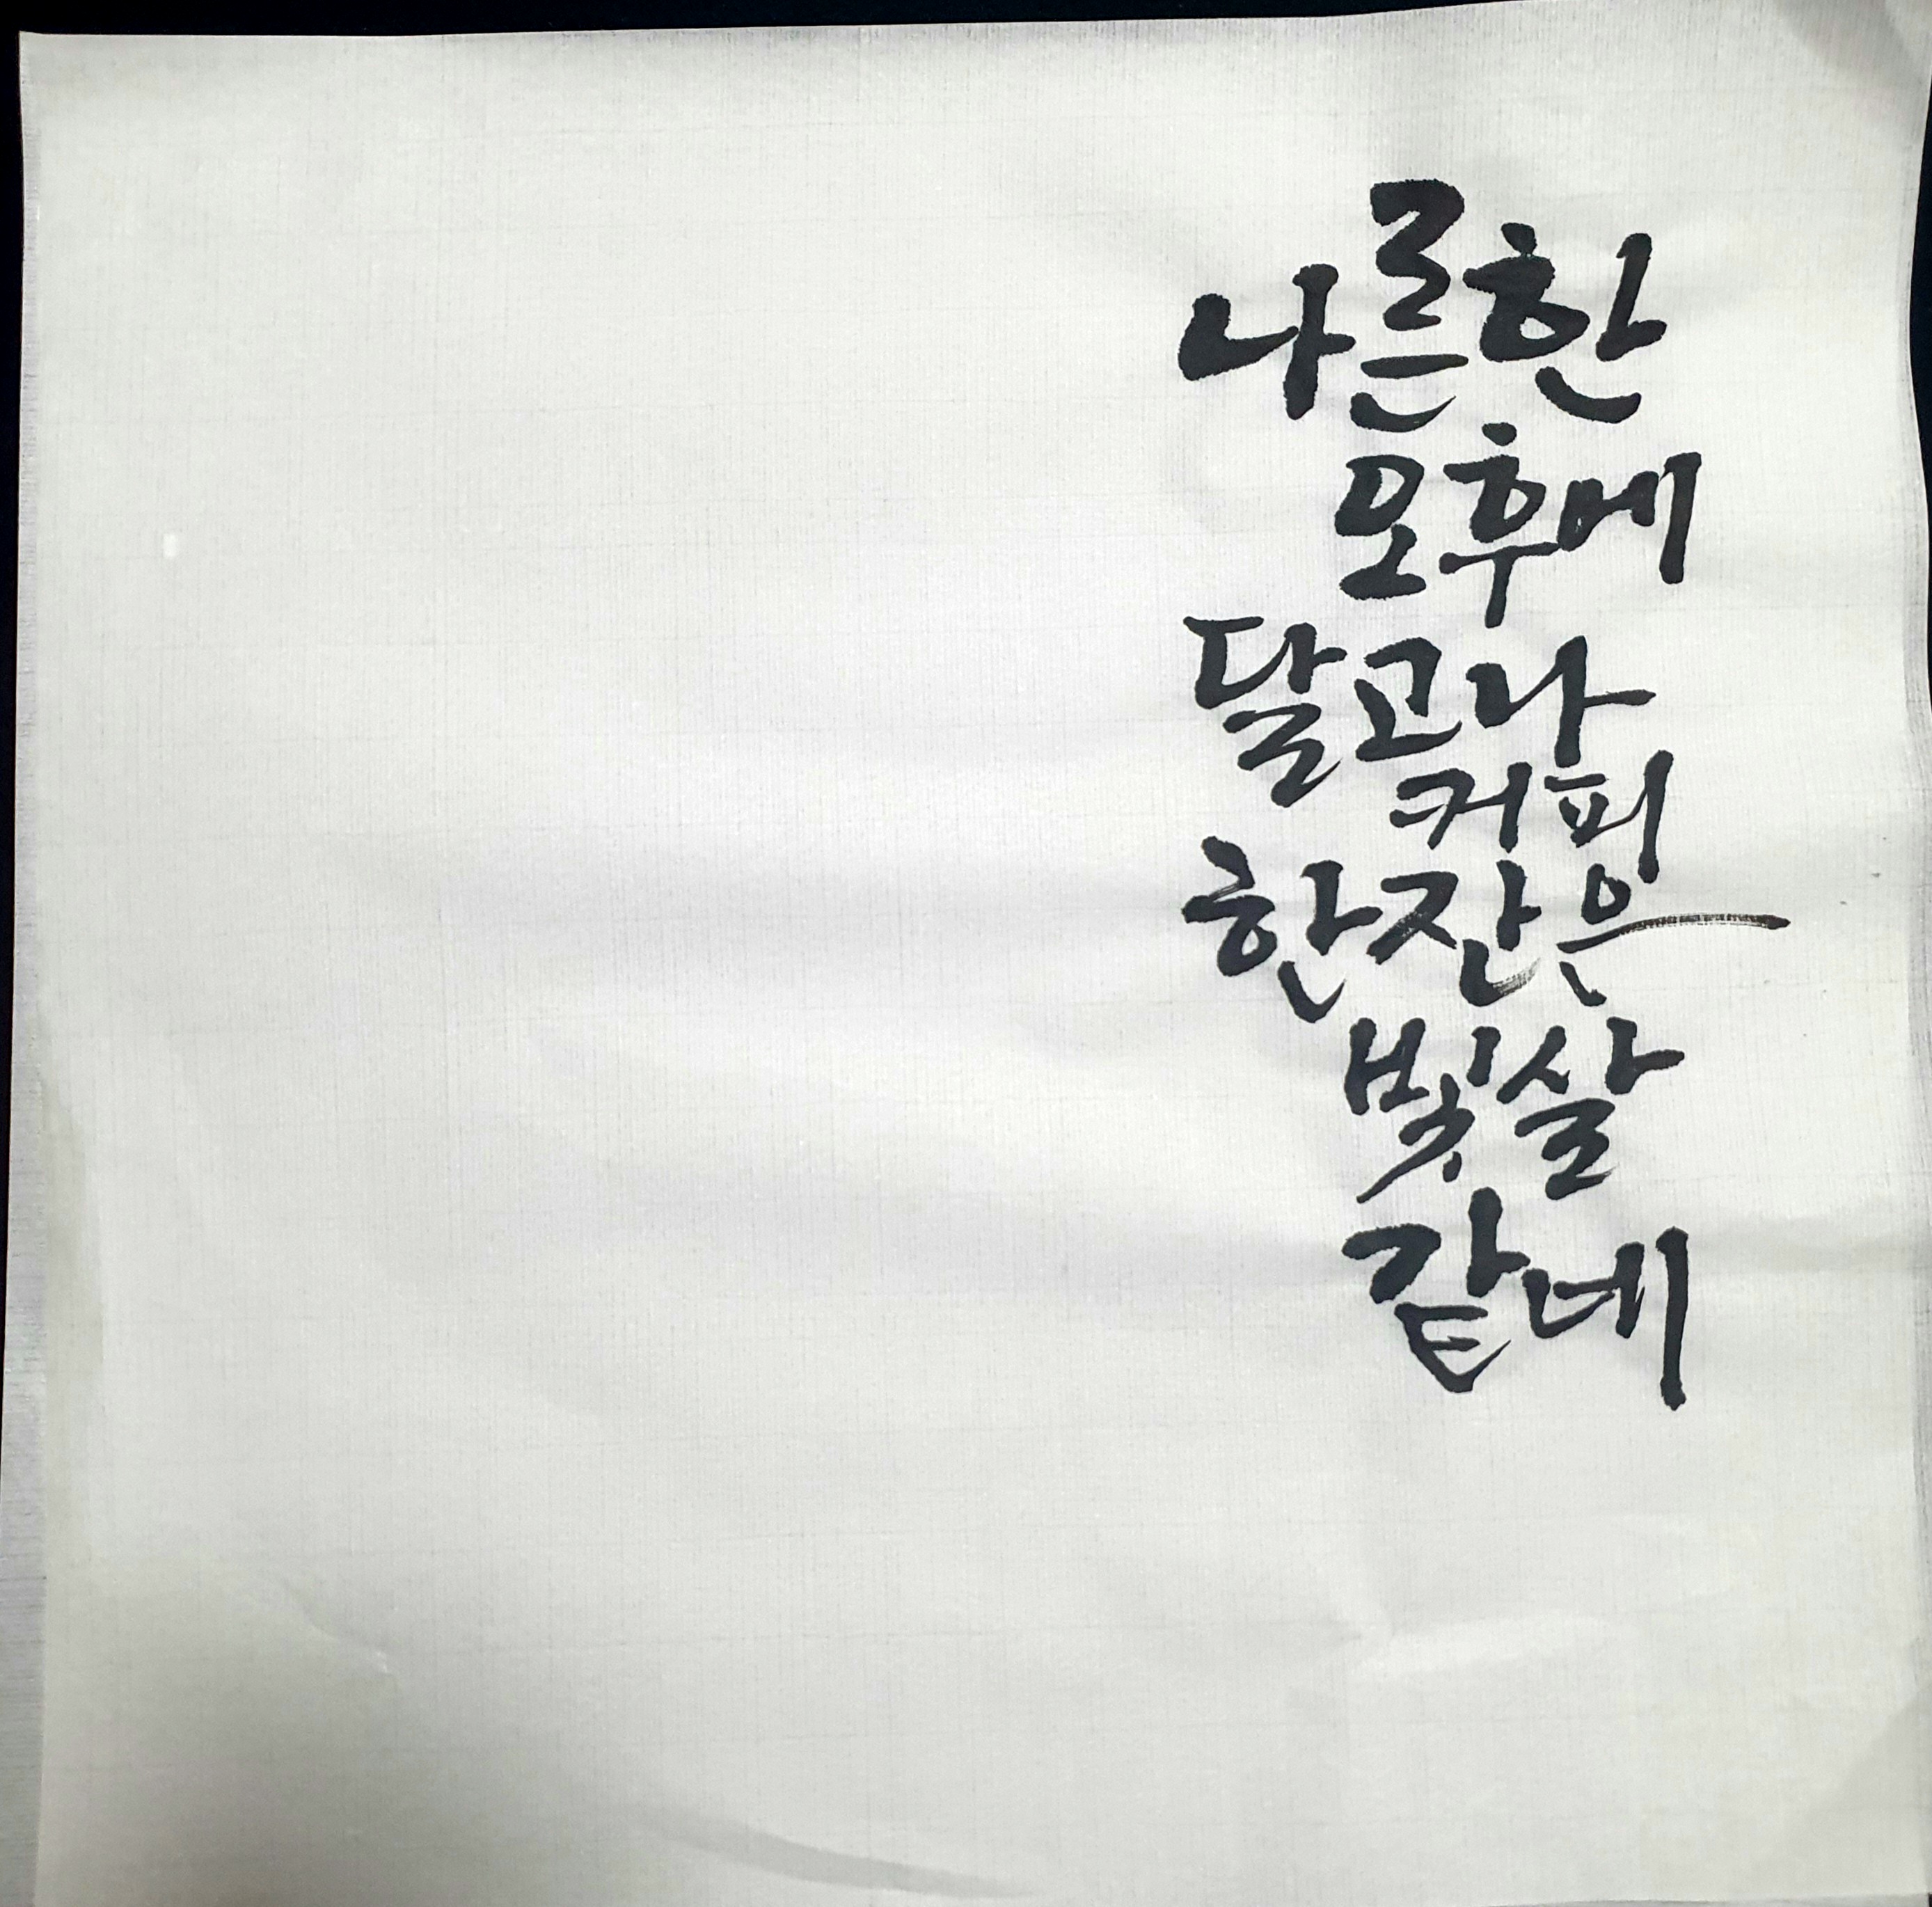 나른한
오후에
달고나
커피
한잔은
빛살
같네